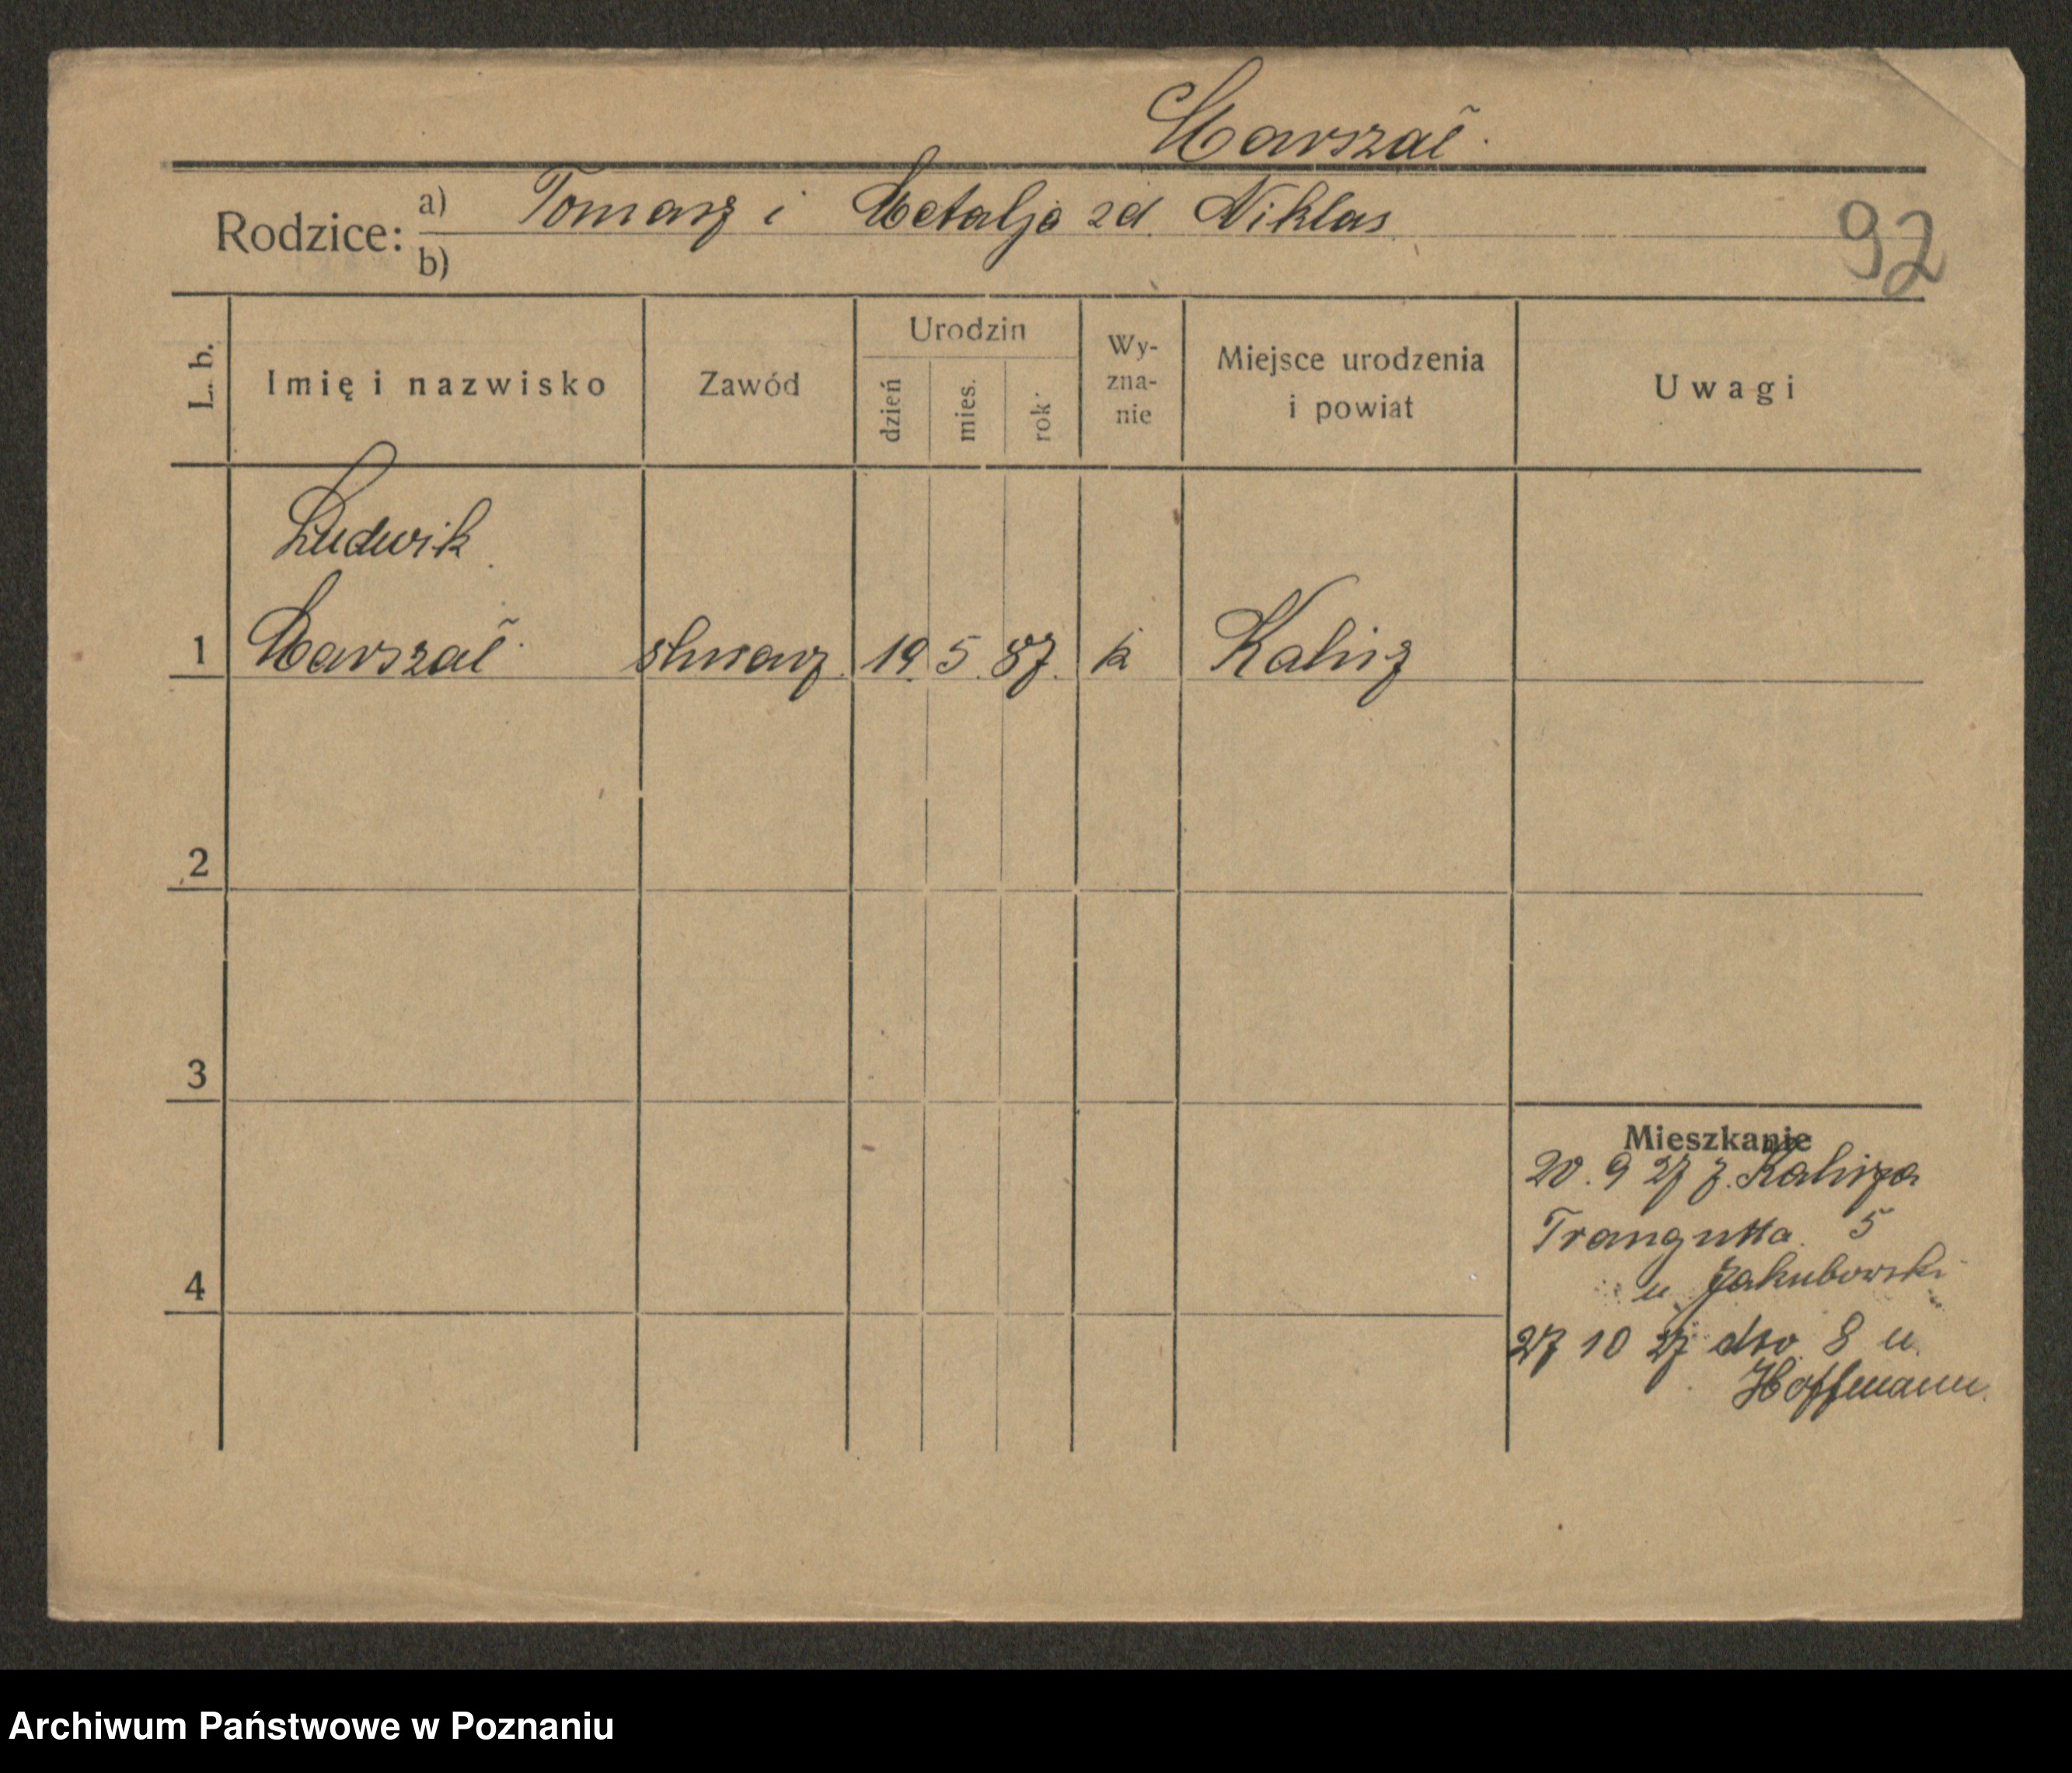 Marszał.
Rodzice: a) Tomasz i Metalja zd. Niklas
b)
92
L. b.
Imię i nazwisko
Zawód
Urodzin
dzień
mies.
rok
Wy-
zna-
nie
Miejsce urodzenia
i powiat
Uwagi
Ludwik
1 Marszał ślusarz 19 5 87 k Kalisz
2
3
4
Mieszkanie
20. 9 27 z. Kalisza
Traugutta 5
u Jakubowski
27 10 27 dto 8 u.
Hoffmann.
Archiwum Państwowe w Poznaniu